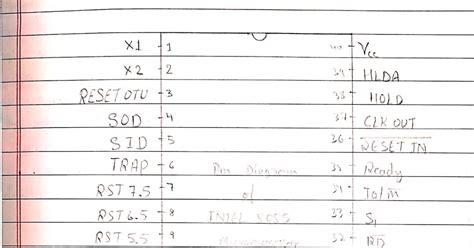 X1 1 40 Vcc
X2 2 39 HLDA
RESET OTU 3 38 HOLD
SOD 4 37 CLK OUT
SID 5 36 RESET IN
TRAP 6 Pin Diagram 35 Ready
RST 7.5 7 of 34 IO/M
RST 6.5 8 INTEL 8085 33 S1
RST 5.5 9 Microprocessor 32 RD